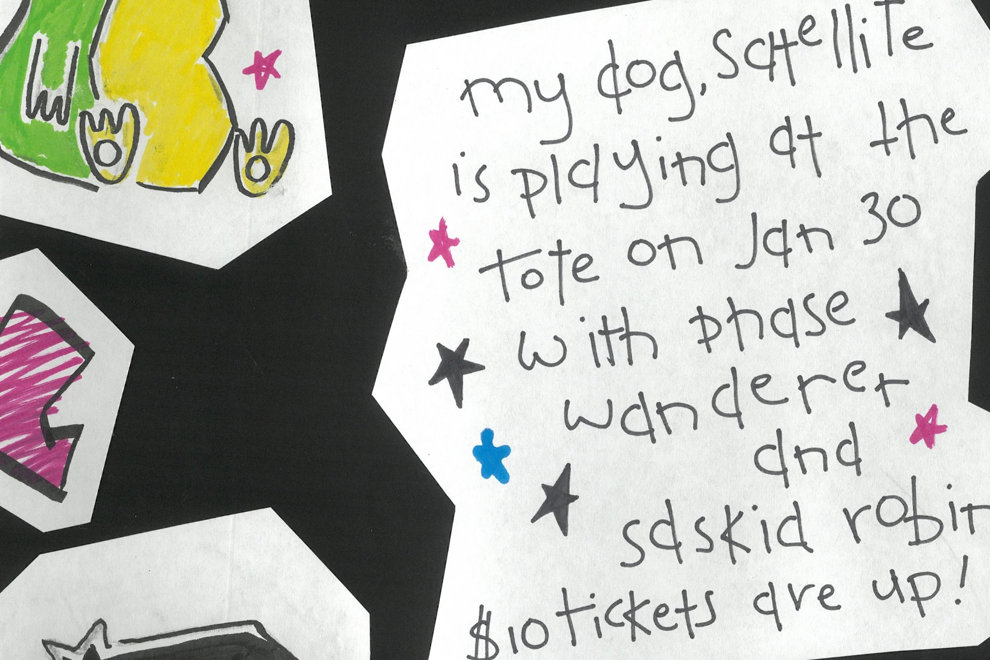 my dog, satellite
is playing at the
tote on Jan 30
with phase
wanderer
and
saskia robin
$10 tickets are up!